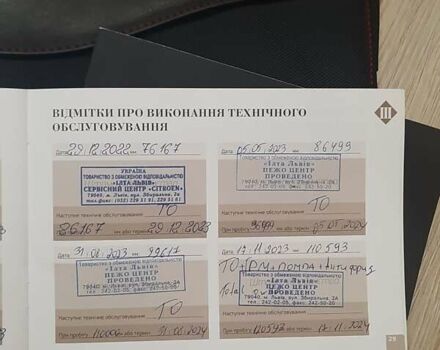 ВІДМІТКИ ПРО ВИКОНАННЯ ТЕХНІЧНОГО
ОБСЛУГОВУВАННЯ
III
Дата 29.12.2022 76167
УКРАЇНА
ТОВАРИСТВО З ОБМЕЖЕНОЮ ВІДПОВІДАЛЬНІСТЮ
«ІЛТА ЛЬВІВ»
СЕРВІСНИЙ ЦЕНТР «CITROEN»
79040, м. Львів, вул. Збиральна, 2а
Наступне технічне обслуговування TO
86167 км або термін 29.12.2023
Дата 05.05.2023 86499
Товариство з обмеженою відповідальністю
«Ілта Львів»
ПЕЖО ЦЕНТР
ПРОВЕДЕНО
Наступне технічне обслуговування
При пробігу км або термін 05.05.2024
Дата 31.08.2023 99617
Товариство з обмеженою відповідальністю
«Ілта Львів»
ПЕЖО ЦЕНТР
ПРОВЕДЕНО
79040, м. Львів, вул. Збиральна, 2а
тел. 242-02-05, факс 242-50-20
Наступне технічне обслуговування TO
При пробігу 110000 або термін 31.08.2024
Дата 17.11.2023 110593
ТО+ГРМ+помпа+антифриз
Товариство з обмеженою відповідальністю
«Ілта Львів»
Total
ПЕЖО ЦЕНТР
ПРОВЕДЕНО
79040, м. Львів, вул. Збиральна, 2а
Наступне технічне обслуговування TO
При пробігу км або термін 17.11.2024
29